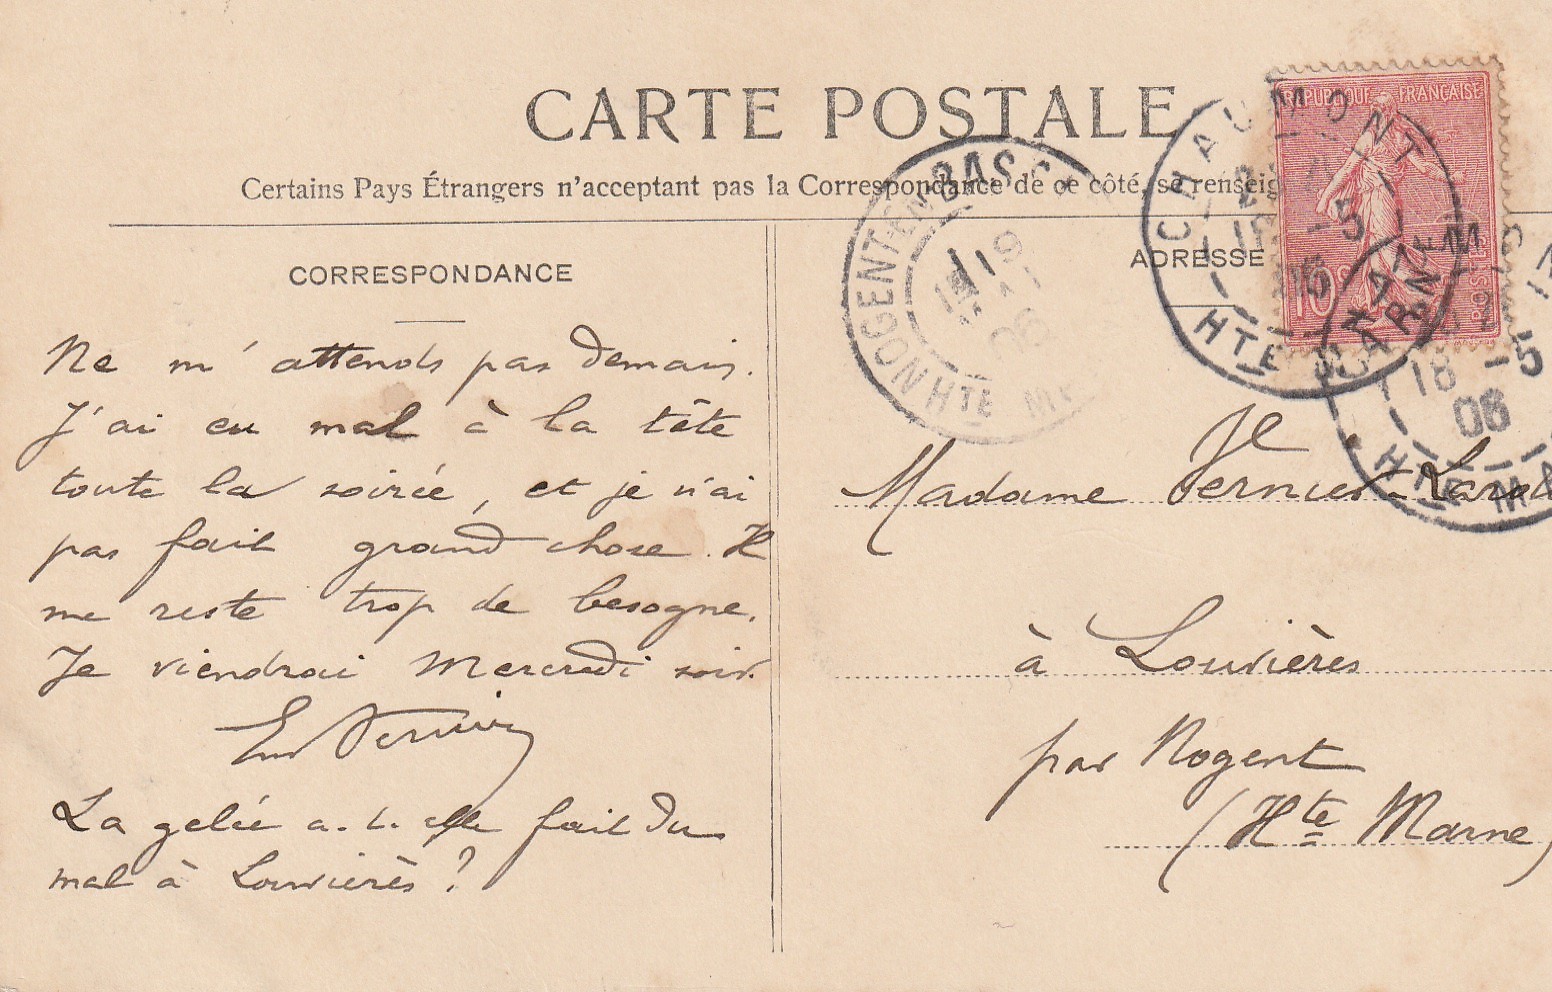 CARTE POSTALE
Certains Pays Étrangers n'acceptant pas la Correspondance de ce côté, se renseig
CORRESPONDANCE
Ne m'attends pas demain.
J'ai eu mal à la tête
toute la soirée, et je n'ai
pas fait grand chose. Il
me reste trop de besogne.
Je viendrai Mercredi soir.
La gelée a-t-elle fait du
mal à Louvières ?
ADRESSE
Madame Vernier-
à Louvières
par Nogent
(Hte Marne)
REPUBLIQUE FRANÇAISE
10
POSTES
CHAUMONT
HTE MARNE
18 -5
06
NOGENT-EN-BASSI
HTE MA
19
06
HTE MA
18 -5
06